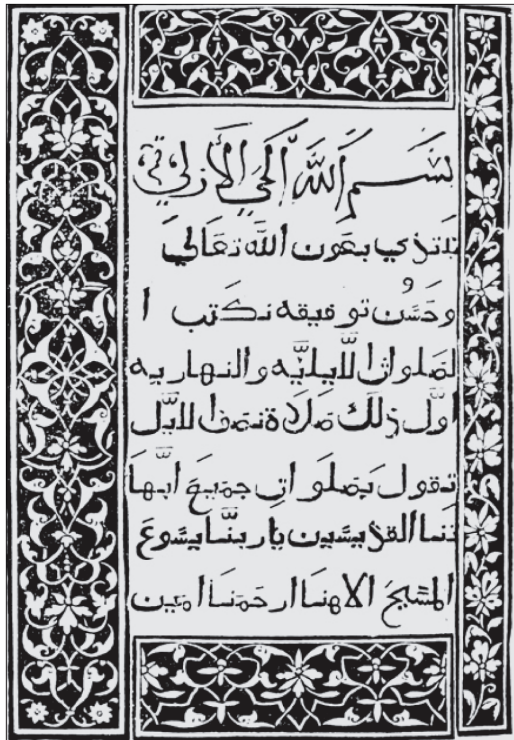 بسم الله الحي الأزلي
نبتدي بعون الله تعالي
وحسن توفيقه نكتب ا
لصلوات الليليه والنهاريه
اول ذلك صلاة نصف الليل
تقول بصلوات جميع ابها
تنا القديسين يا ربنا يسوع
المسيح الاهنا ارحمنا امين